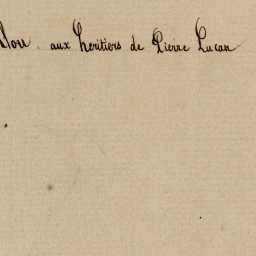 aux heritiers de Pierre Lucan